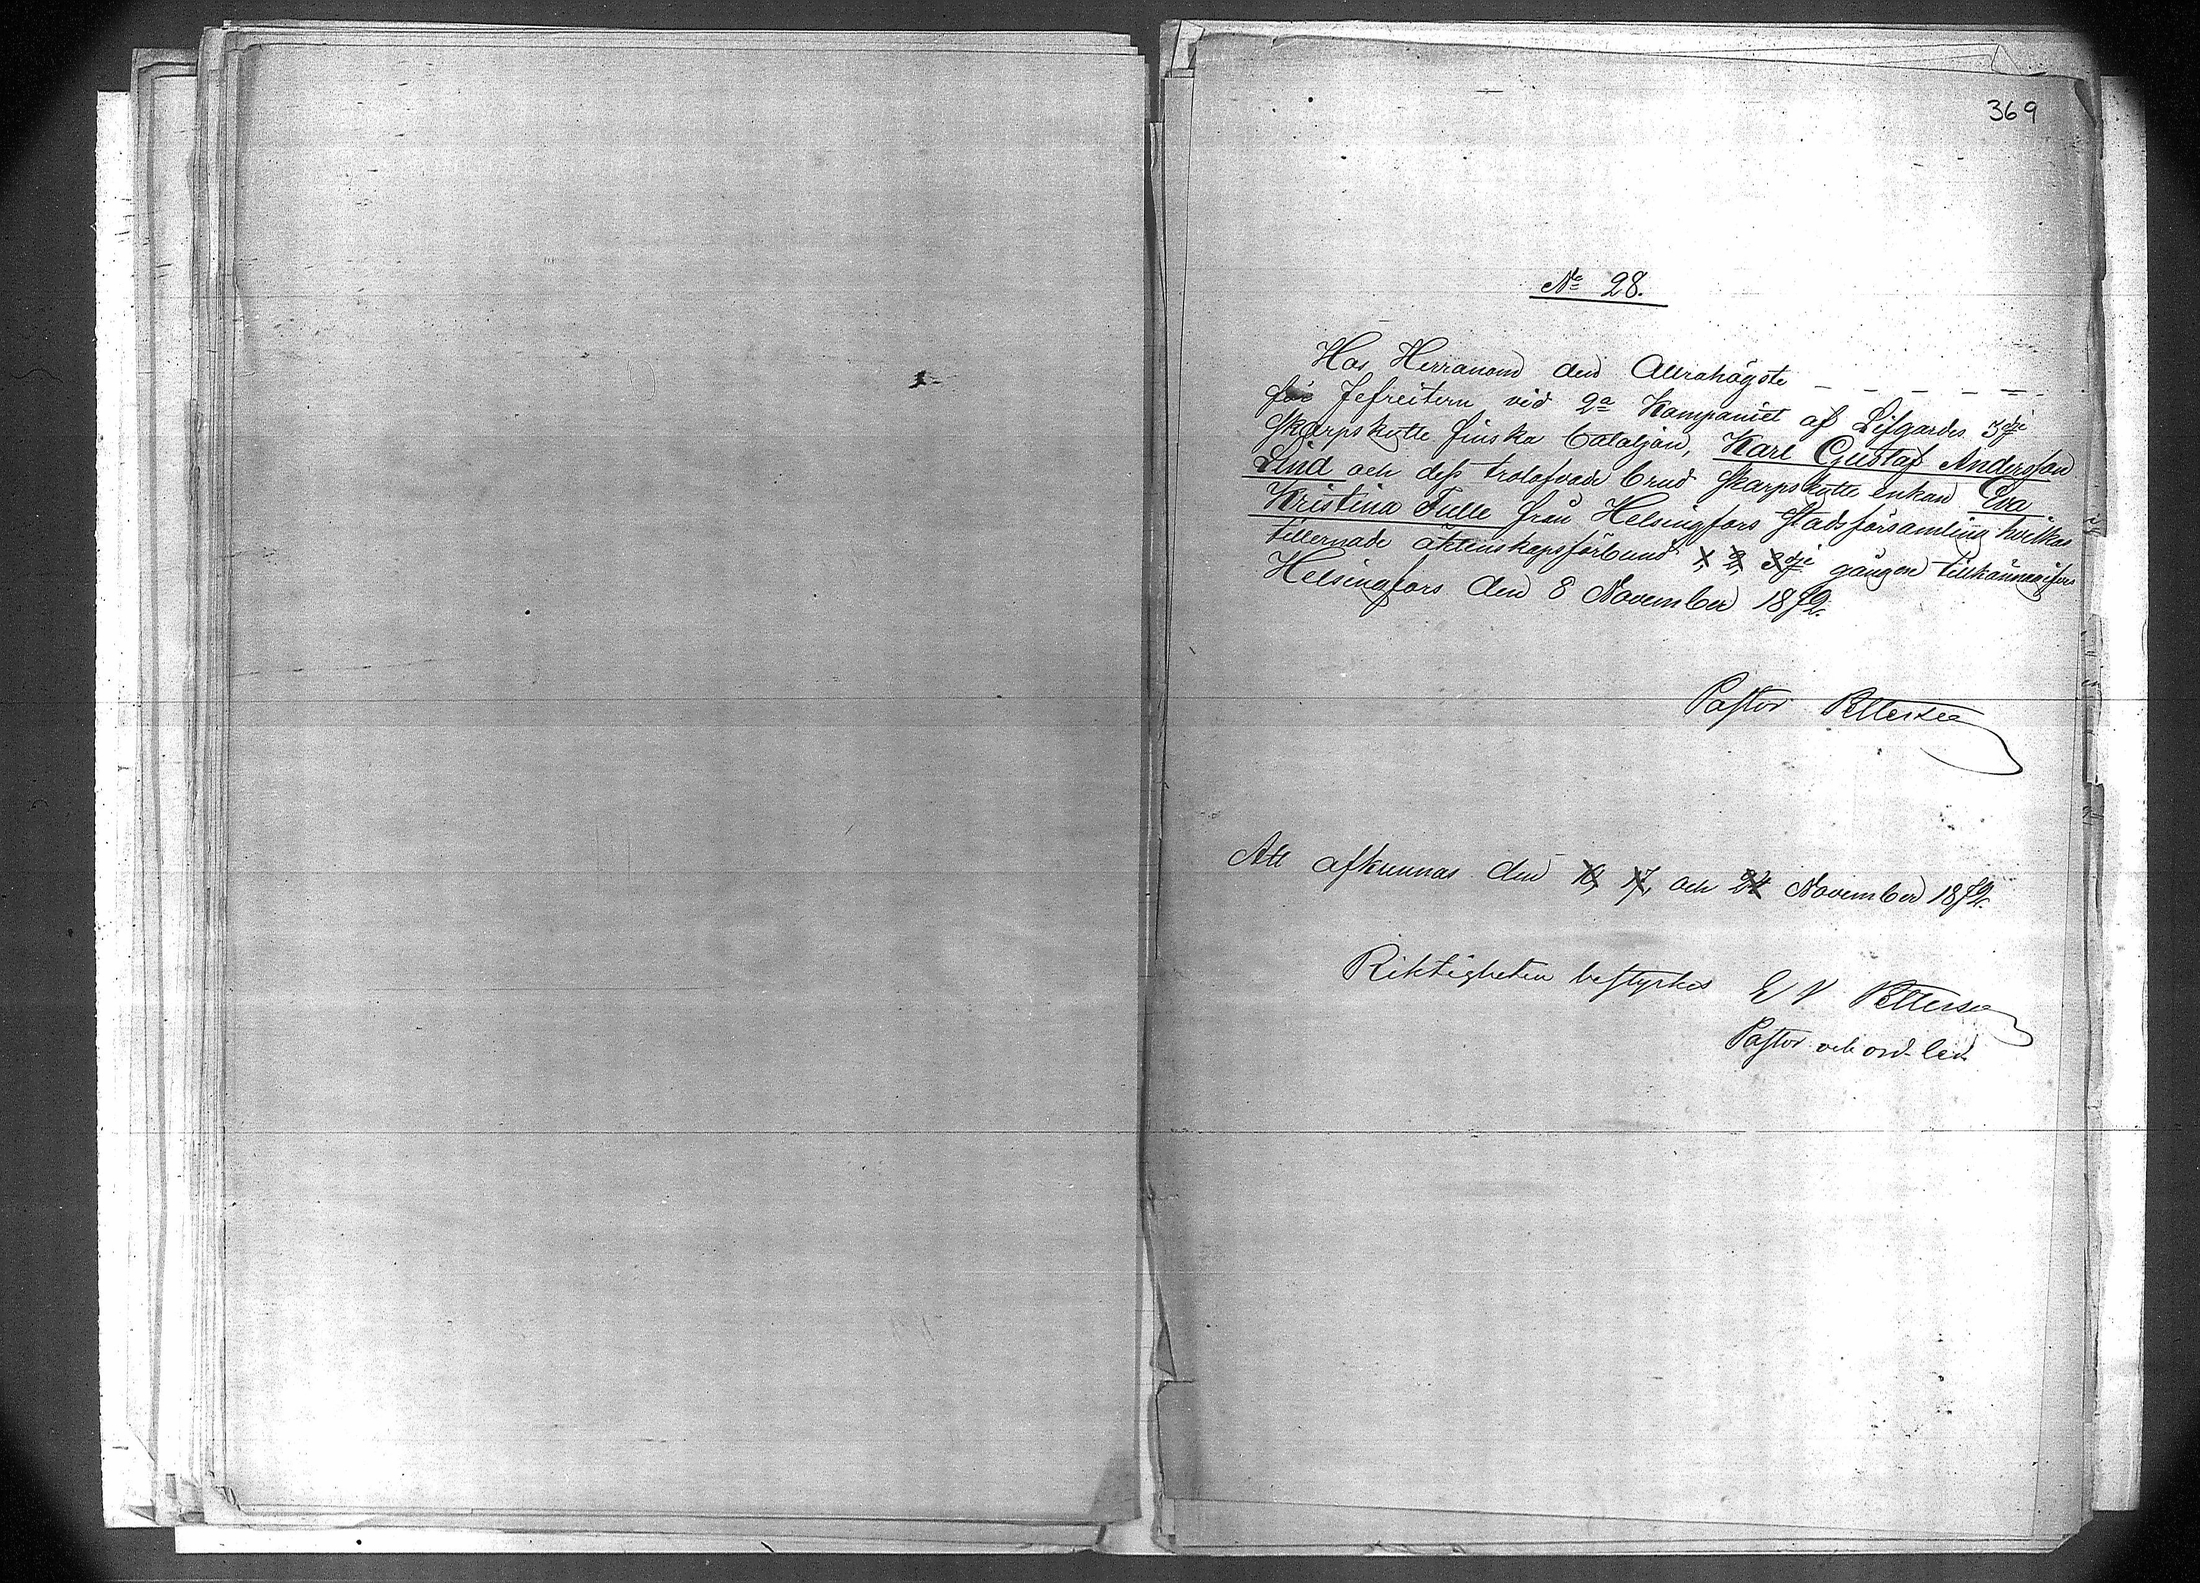 369
No 28.
Hos Herranom den Allrahögste – – – – – –
för Jefreitern vid 2a Kompaniet af Lifgardes 3dje
Skarpskytte Finska bataljon, Karl Gustaf Andersson
Lind och dess trolofvade brud Skarpskytte enkan Eva
Kristina Tulle från Helsingfors Stadsförsamling hvilkas
tillernade äktenskapsförbund 1, 2, 3dje gången tillkännagifves
Helsingfors den 8 November 1872.
Pastor Pettersson
Att afkunnas den 10, 17, och 24 November 1872.
Riktigheten bestyrkes E V Pettersson
Pastor och ord. led.